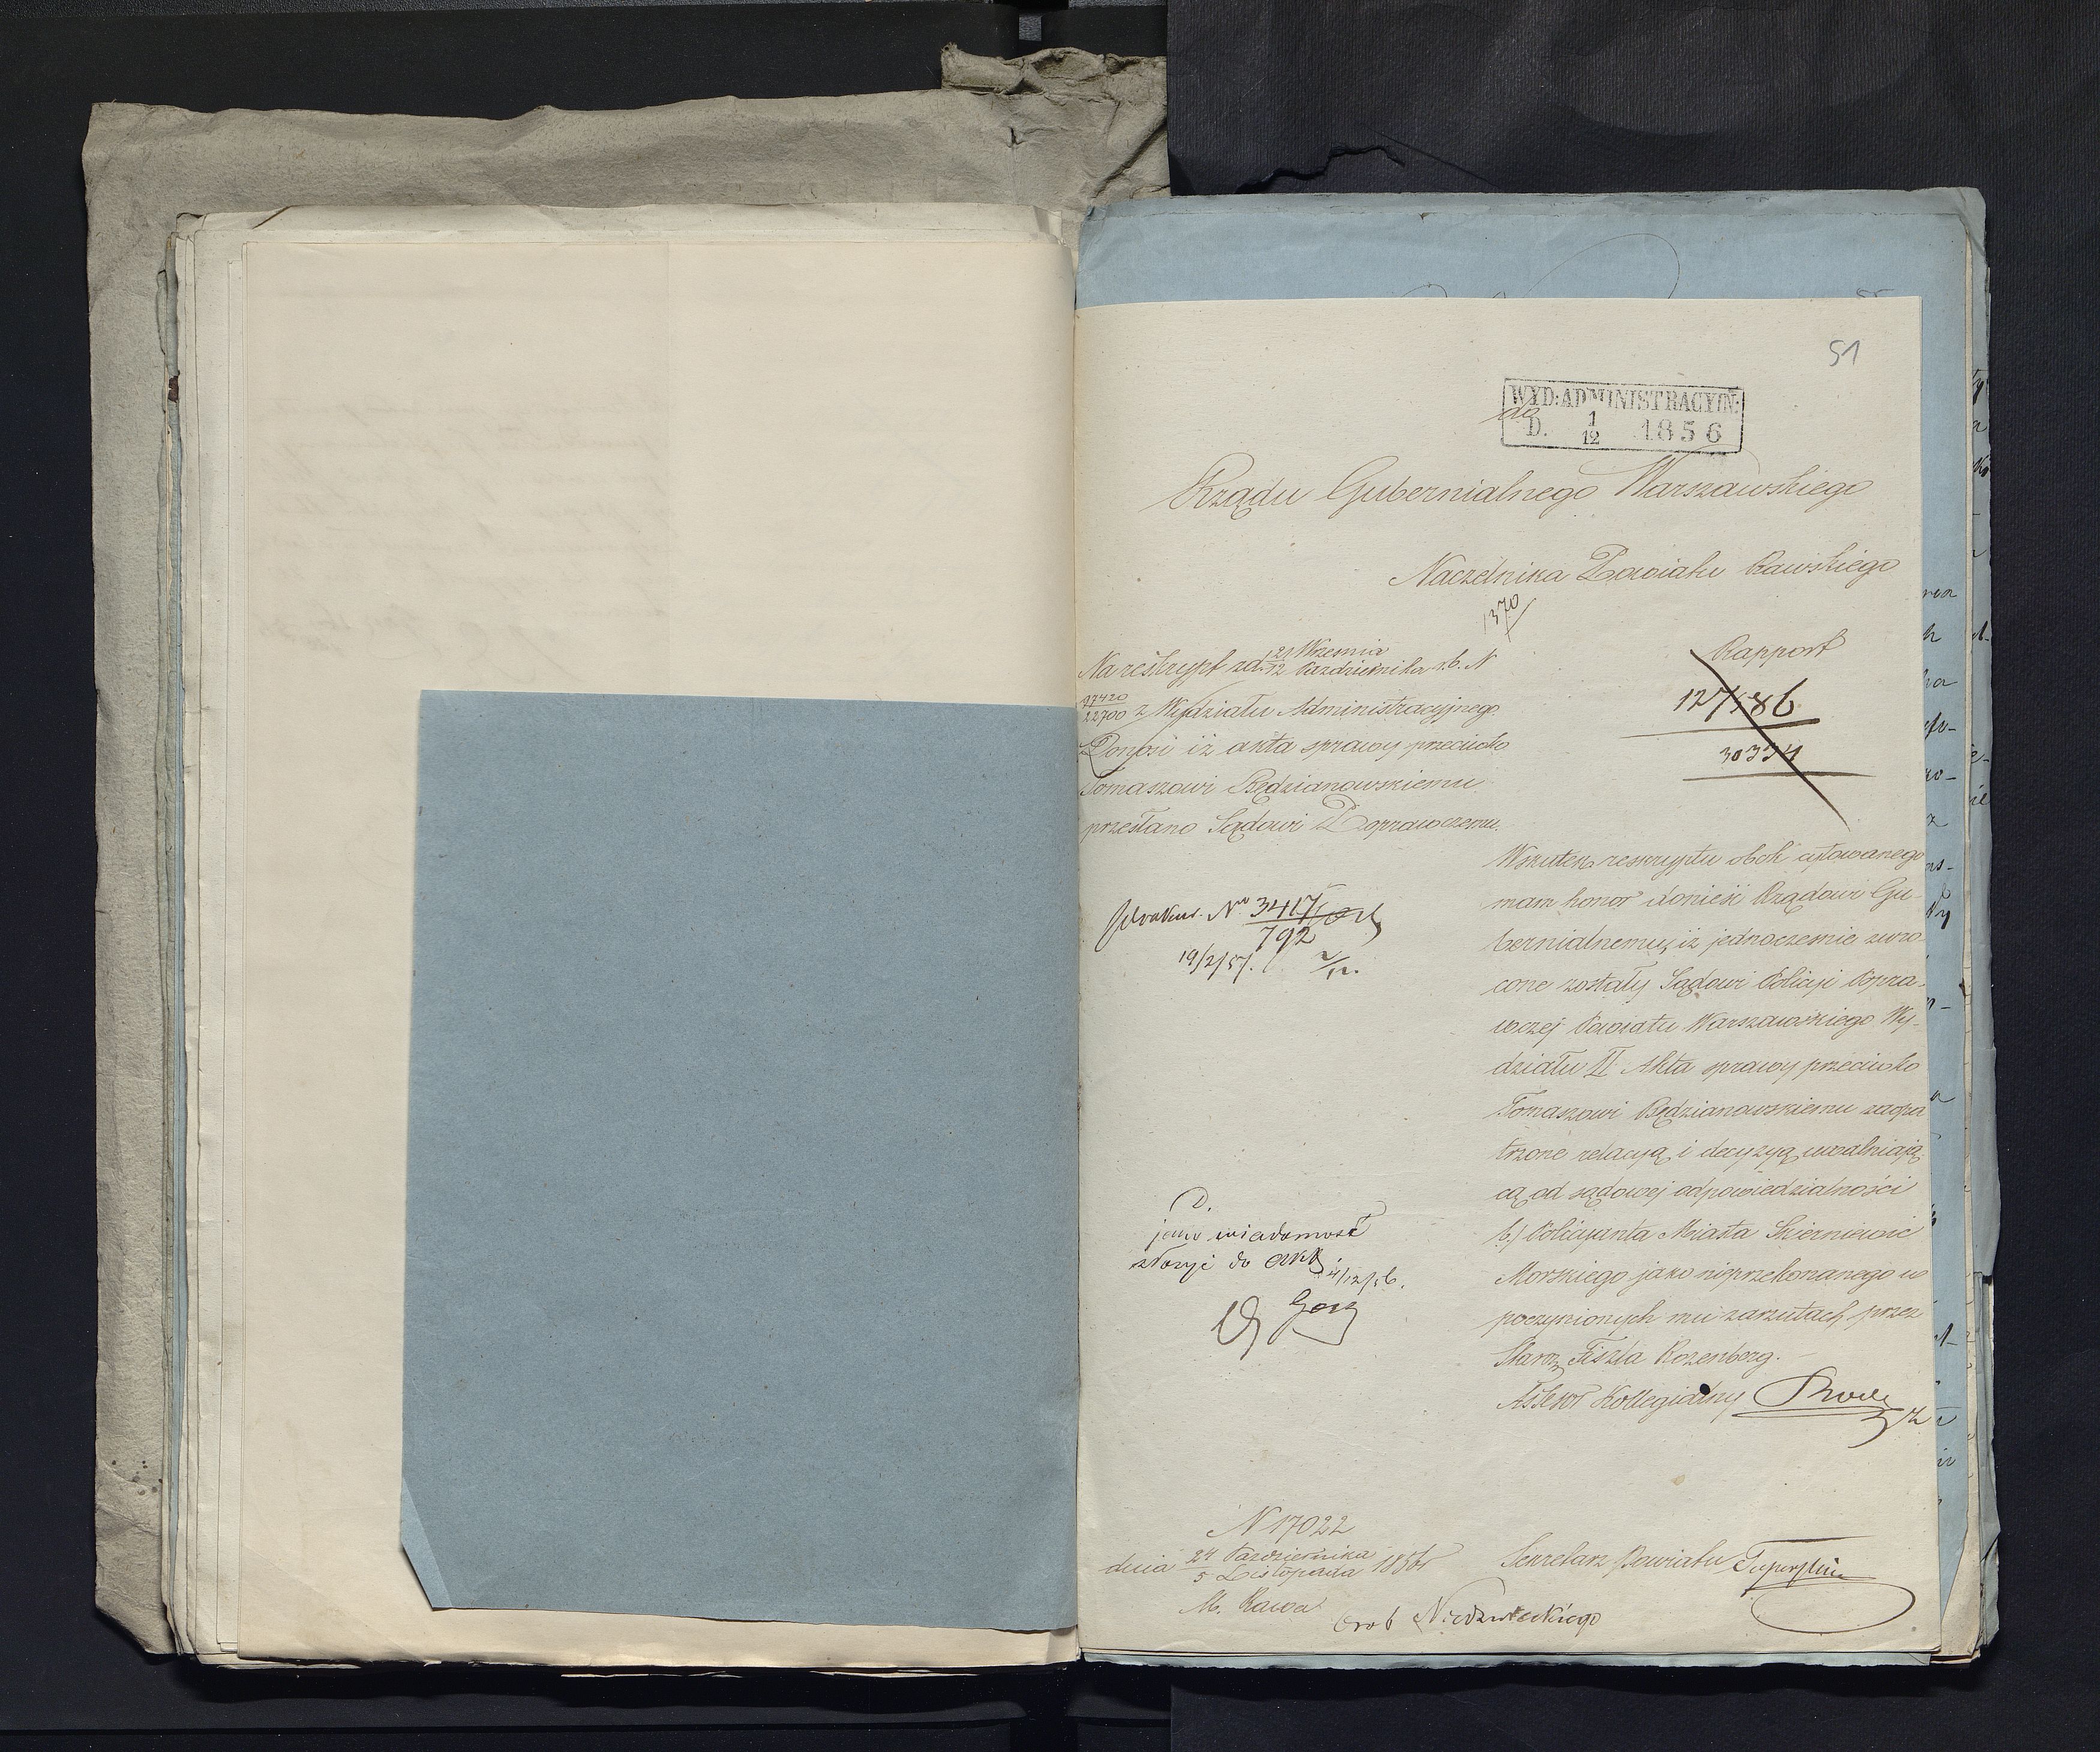 51
WYD: ADMINISTRACYIN:
do
D. 1/12 1856
Rządu Gubernialnego Warszawskiego
Naczelnika Powiatu Rawskiego
1370
Na reskrypt zd. Września
12 Października r.b. N
22700 z Wydziału Administracyjnego
Donosi iż akta sprawy przeciwko
Tomaszowi Będzianowskiemu
przesłano Sądowi Poprawczemu.
Rapport
127186
30334
Wskutek reskryptu obok cytowanego
mam honor donieść Rządowi Gu-
bernialnemu, iż jednocześnie zwró-
cone zostały Sądowi Policyi Popra-
wczej Powiatu Warszawskiego Wy-
działu II Akta sprawy przeciwko
Tomaszowi Będzianowskiemu zaopa
trzone relacyą i decyzyą uwalniają
cą od sądowej odpowiedzialności
b.) Policyanta Miasta Skierniewic
Morskiego jako nieprzekonanego w
poczynionych mu zarzutach przez
Starz. Fiszla Rozenberg.
Assesor Kollegialny
No 3417
792
19/2/57. 2/12.
D.
jako wiadomość
złożyć do akt
4/12/56.
N 17022
dnia 24 Października
5 Listopada 1856 r
M. Rawa
Sekretarz Powiatu